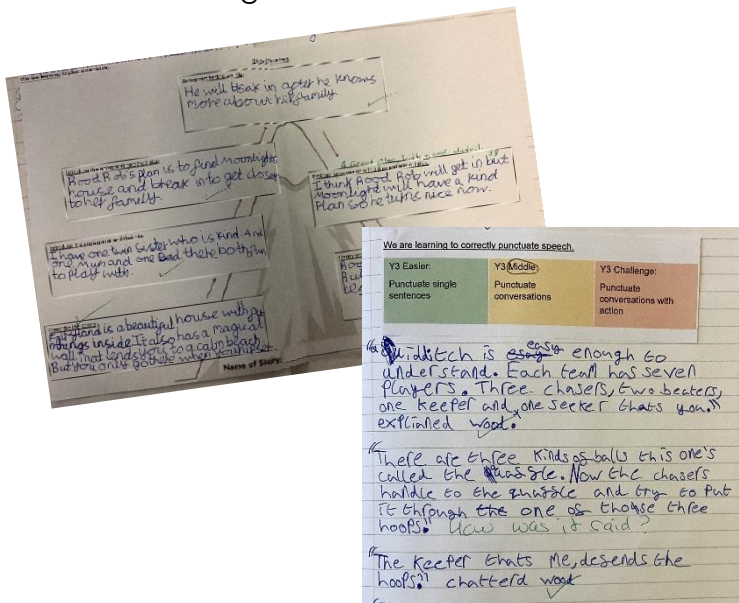 He will break in after he knows
more about her family
Rood Rob's plan is to find moonlights
house and break in to get closer
to her family.
I think Rood Rob will get in but
Moonlight will have a kind
Plan so he turns nice now.
I have one twin sister who is kind. And
one mum and one Dad there both fun
to play with.
is a beautiful house with
things inside. It also has a magical
wall that leads you to a calm beach
But you only go there when your upset.
Name of Story:
We are learning to correctly punctuate speech.
Y3 Easier:
Punctuate single
sentences
Y3 Middle:
Punctuate
conversations
Y3 Challenge:
Punctuate
conversations with
action
"Quidditch is easy enough to
understand. Each team has seven
players. Three chasers, two beaters,
one keeper and one seeker thats you."
explianed wood.
"There are three kinds of balls this one's
called the quaffle. Now the chasers
handle to the quaffle and try to put
it through the one of those three
hoops." How was it said?
"The keeper thats me, defends the
hoops." chatterd wood